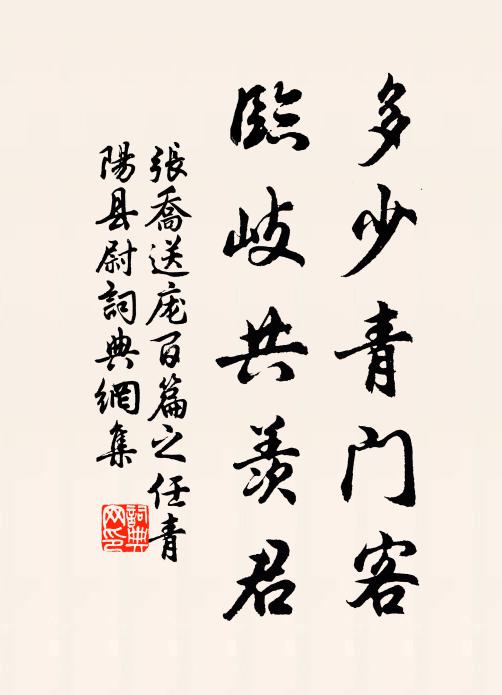 多少青门客
臨岐共羨君
張喬送庞百篇之任青
陽县尉詞典網集
詞典网印